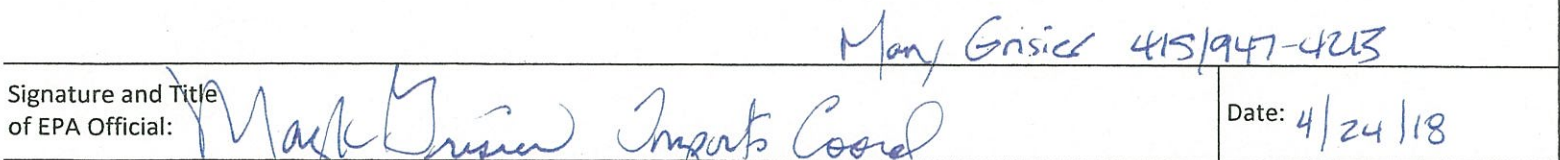 Mary Grisier 415/947-4213
Signature and Title
of EPA Official: Mary Grisier Imports Coord
Date: 4/24/18